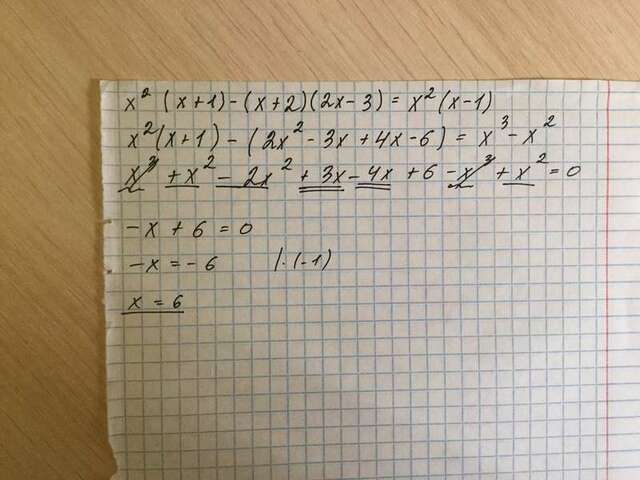 x² (x+1) - (x+2)(2x-3) = x² (x-1)
x² (x+1) - (2x² - 3x + 4x - 6) = x³ - x²
x³ + x² - 2x² + 3x - 4x + 6 - x³ + x² = 0
-x + 6 = 0
-x = -6 |·(-1)
x = 6